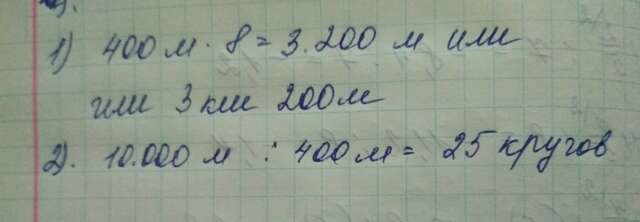 1) 400 м · 8 = 3.200 м или
или 3 км 200 м
2). 10.000 м : 400 м = 25 кругов